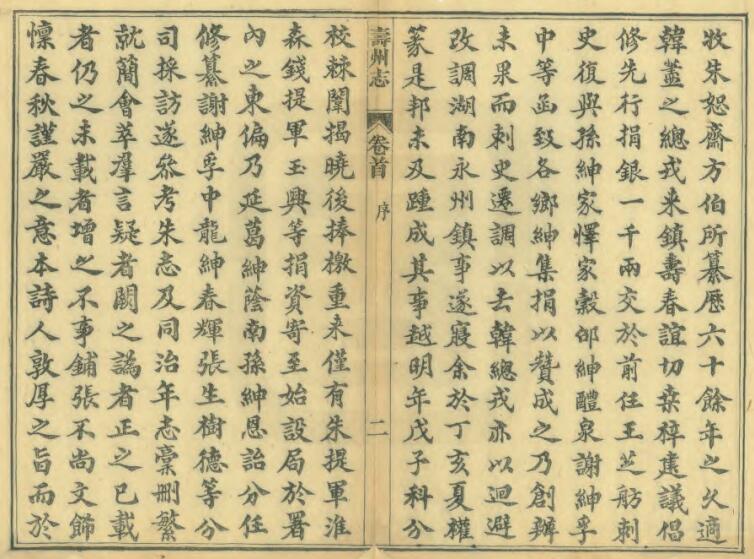 牧朱恕齋方伯所纂歷六十餘年之久適
韓蓋之總戎来鎮壽春誼切桒梓建議倡
修先行捐銀一千兩交於前任王芝舫刺
史復與孫紳家懌家榖邰紳醴泉謝紳孚
中等函致各鄉紳集捐以贊成之乃創辦
未果而刺史遷調以去韓總戎亦以迴避
改調湖南永州鎮事遂寢余於丁亥夏權
篆是邦未及踵成其事越明年戊子科分
壽州志
卷首
序
二
校棘闈揭曉後捧檄重来僅有朱提軍淮
森錢提軍玉興等捐資寄至始設局於署
內之東偏乃延葛紳蔭南孫紳恩詒分任
修纂謝紳孚中龍紳春輝張生樹德等分
司採訪遂叅考朱志及同治年志稾刪繁
就簡會萃羣言疑者闕之譌者正之已載
者仍之未載者增之不事鋪張不尚文飾
懍春秋謹嚴之意本詩人敦厚之旨而於